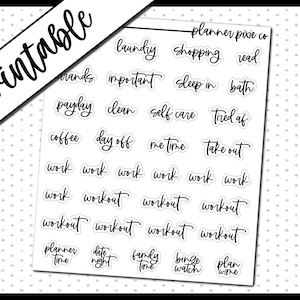 printable
planner pixie co
laundry shopping read
important sleep in bath
payday clean self care tired af
coffee day off me time take out
work work work work work work
work workout workout workout
workout workout workout workout
planner time date night family time binge watch plan wine